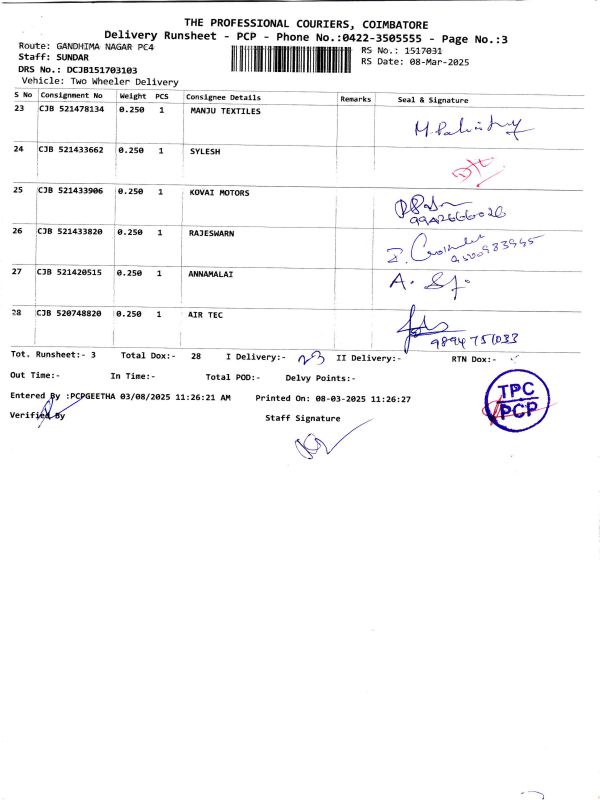 THE PROFESSIONAL COURIERS, COIMBATORE
Delivery Runsheet - PCP - Phone No.:0422-3505555 - Page No.:3
Route: GANDHIMA NAGAR PC4 RS No.: 1517031
Staff: SUNDAR RS Date: 08-Mar-2025
DRS No.: DCJB151703103
Vehicle: Two Wheeler Delivery
S No Consignment No Weight PCS Consignee Details Remarks Seal & Signature
23 CJB 521478134 0.250 1 MANJU TEXTILES
24 CJB 521433662 0.250 1 SYLESH
25 CJB 521433906 0.250 1 KOVAI MOTORS
26 CJB 521433820 0.250 1 RAJESWARN
27 CJB 521420515 0.250 1 ANNAMALAI
28 CJB 520748820 0.250 1 AIR TEC
9894751033
Tot. Runsheet:- 3 Total Dox:- 28 I Delivery:- 23 II Delivery:- RTN Dox:-
Out Time:- In Time:- Total POD:- Delvy Points:-
Entered By :PCPGEETHA 03/08/2025 11:26:21 AM Printed On: 08-03-2025 11:26:27
Verified By Staff Signature
TPC
PCP